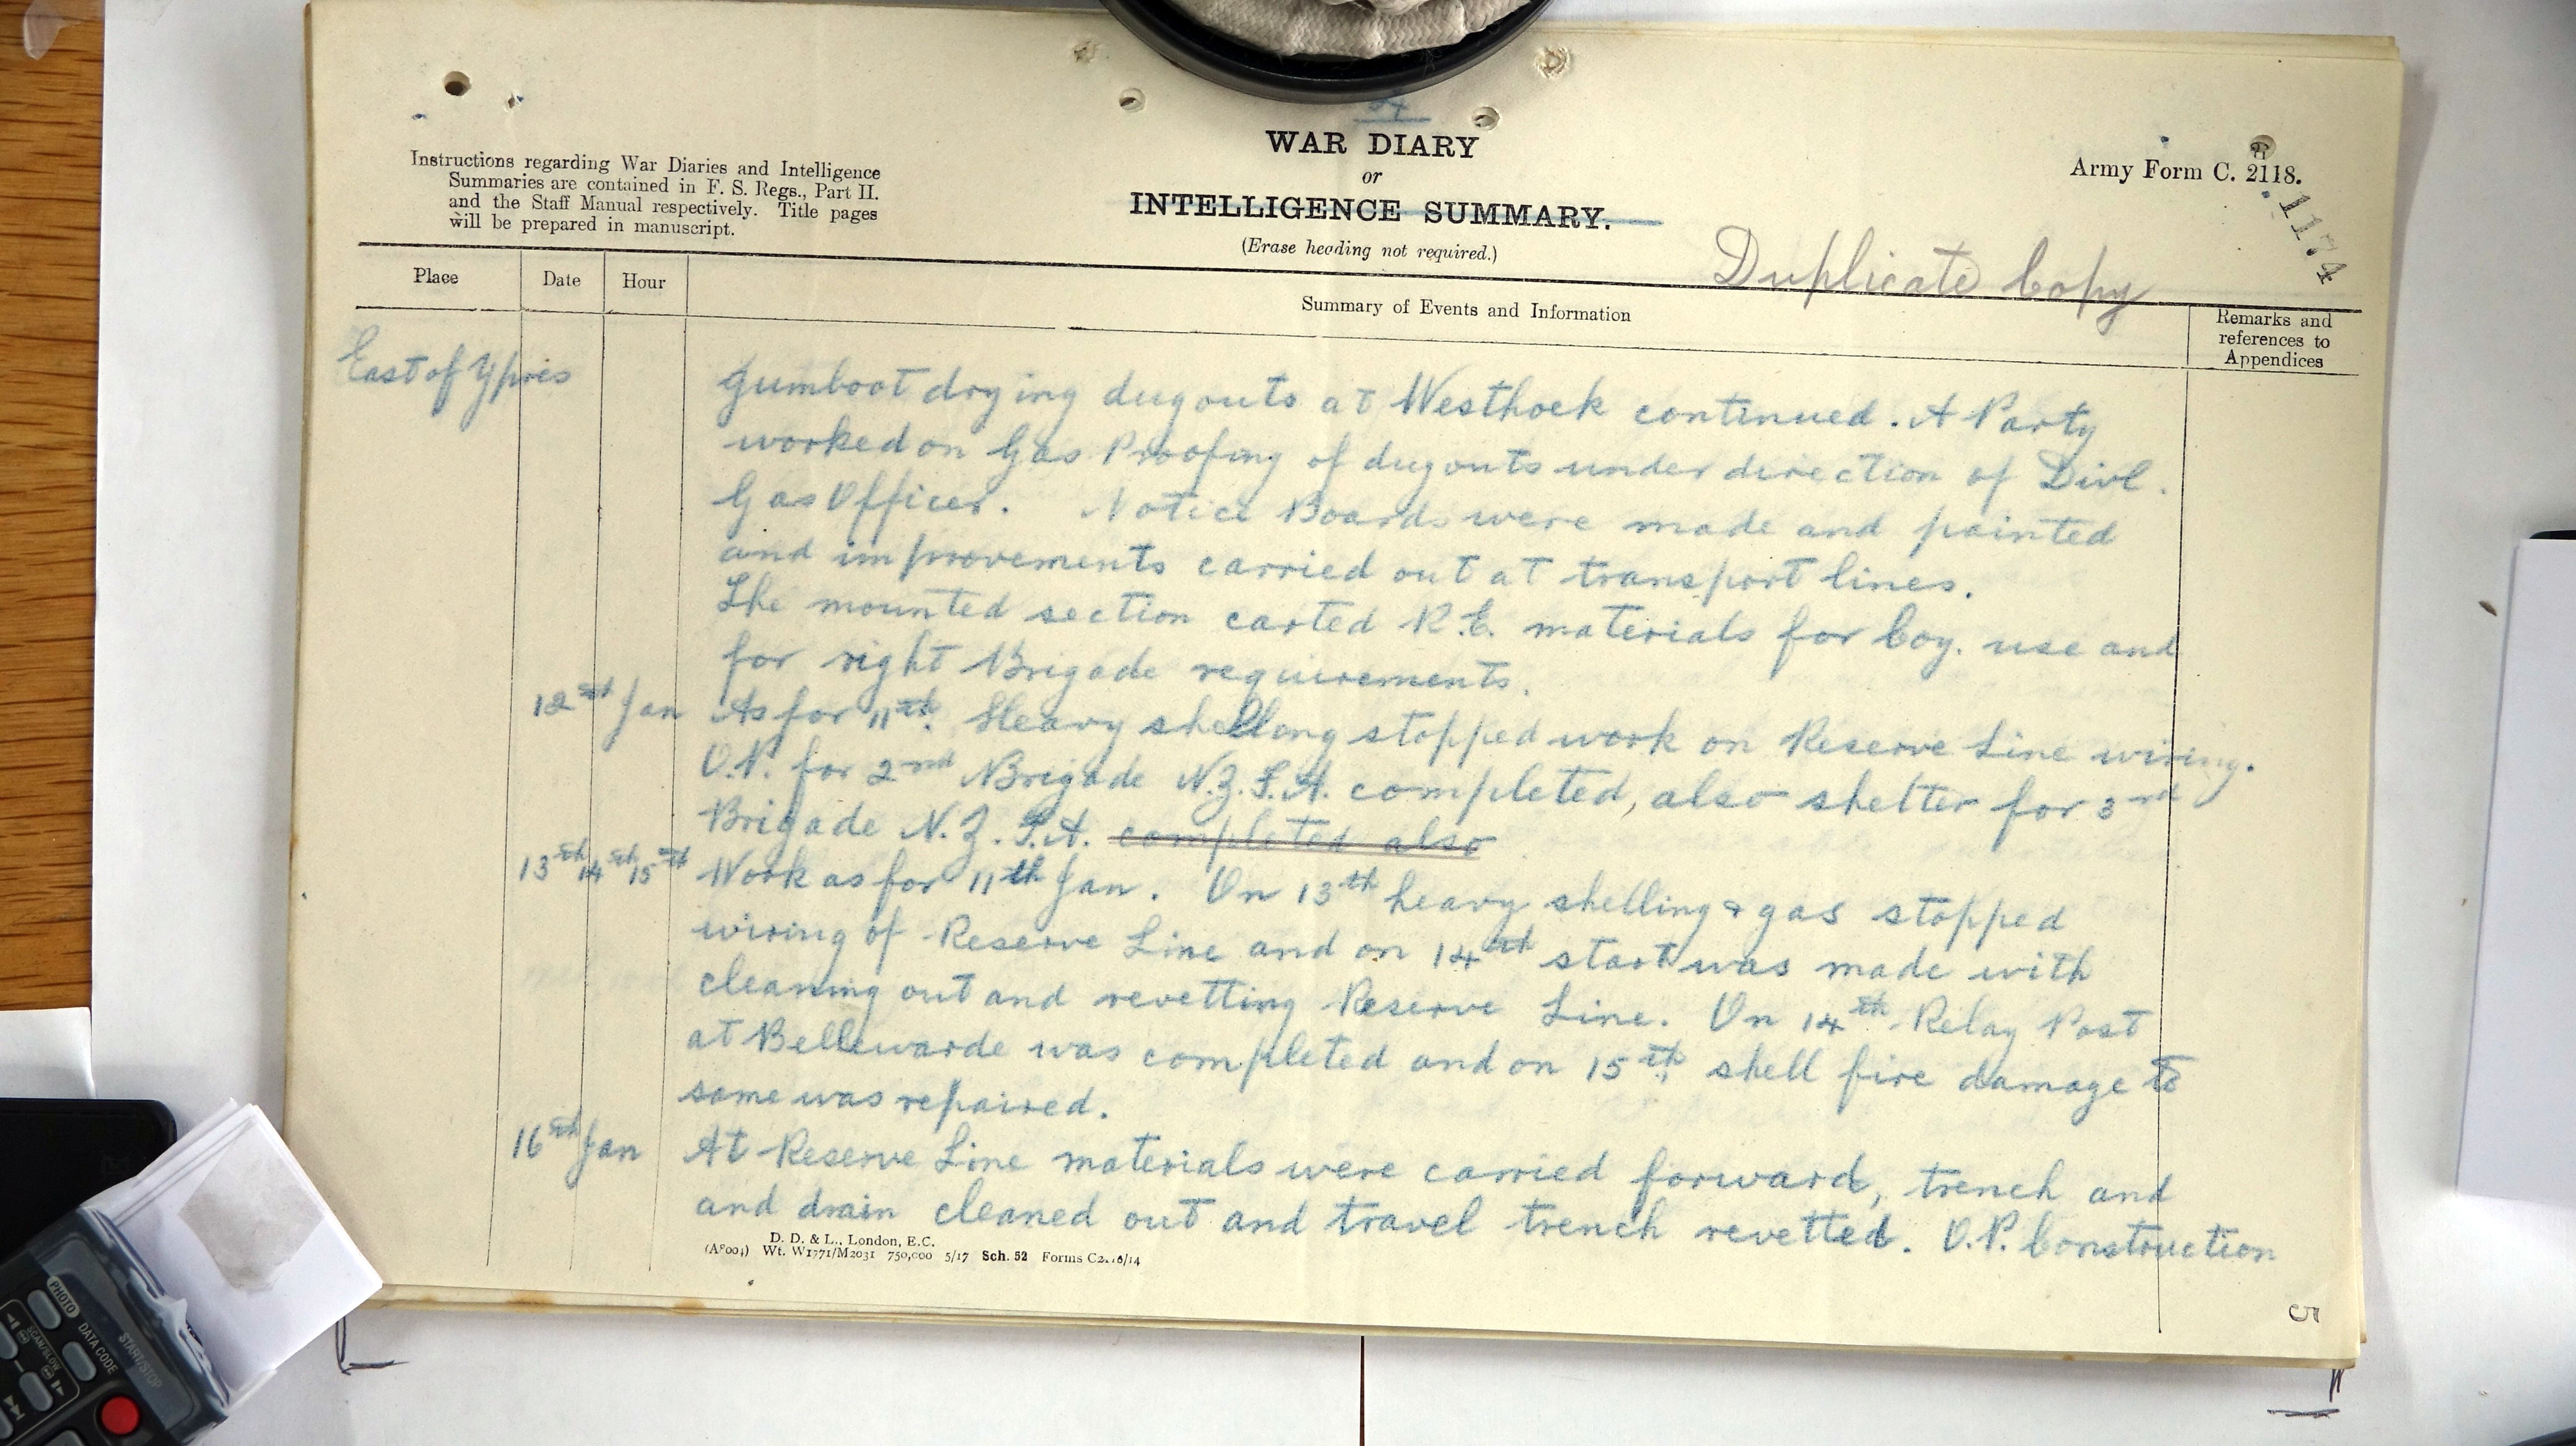 4
WAR DIARY
or
INTELLIGENCE SUMMARY.
(Erase heading not required.)
Instructions regarding War Diaries and Intelligence
Summaries are contained in F. S. Regs., Part II.
and the Staff Manual respectively. Title pages
will be prepared in manuscript.
Army Form C. 2118.
1174
Duplicate Copy
Place
Date
Hour
Summary of Events and Information
Remarks and
references to
Appendices
East of Ypres
Gumboot drying dugouts at Westhoek continued. A Party
worked on Gas Proofing of dugouts under direction of Divl.
Gas Officer. Notice Boards were made and painted
and improvements carried out at transport lines.
The mounted section carted R.E. materials for Coy. use and
for right Brigade requirements.
12th Jan As for 11th. Heavy shelling stopped work on Reserve Line wiring.
O.P. for 2nd Brigade N.Z.F.A. completed, also shelter for 3rd
Brigade N.Z.F.A. completed also
13th 14th 15th Work as for 11th Jan. On 13th heavy shelling & gas stopped
wiring of Reserve Line and on 14th start was made with
cleaning out and revetting Reserve Line. On 14th Relay Post
at Bellewarde was completed and on 15th shell fire damage to
same was repaired.
16th Jan At Reserve Line materials were carried forward, trench and
and drain cleaned out and travel trench revetted. O.P. Construction
D. D. & L., London, E.C.
Wt. W1771/M2031 750,000 5/17 Sch. 52 Forms
5
PHOTO
DATA CODE
START/STOP
SCAN/SLOW